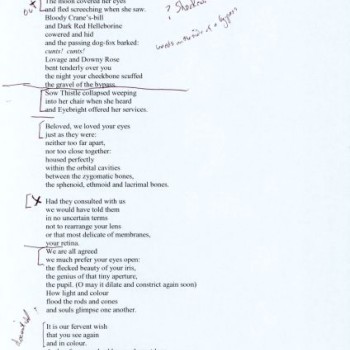 The moon covered her eyes
and fled screeching when she saw.
Bloody Crane's-bill
and Dark Red Helleborine
cowered and hid
and the passing dog-fox barked:
cunts! cunts!
Lovage and Downy Rose
bent tenderly over you
the night your cheekbone scuffed
the gravel of the bypass.
Sow Thistle collapsed weeping
into her chair when she heard
and Eyebright offered her services.
Beloved, we loved your eyes
just as they were:
neither too far apart,
nor too close together:
housed perfectly
within the orbital cavities
between the zygomatic bones,
the sphenoid, ethmoid and lacrimal bones.
Had they consulted with us
we would have told them
in no uncertain terms
not to rearrange your lens
or that most delicate of membranes,
your retina.
We are all agreed
we much prefer your eyes open:
the flecked beauty of your iris,
the genius of that tiny aperture,
the pupil. (O may it dilate and constrict again soon)
How light and colour
flood the rods and cones
and souls glimpse one another.
It is our fervent wish
that you see again
and in colour.
? Shocked